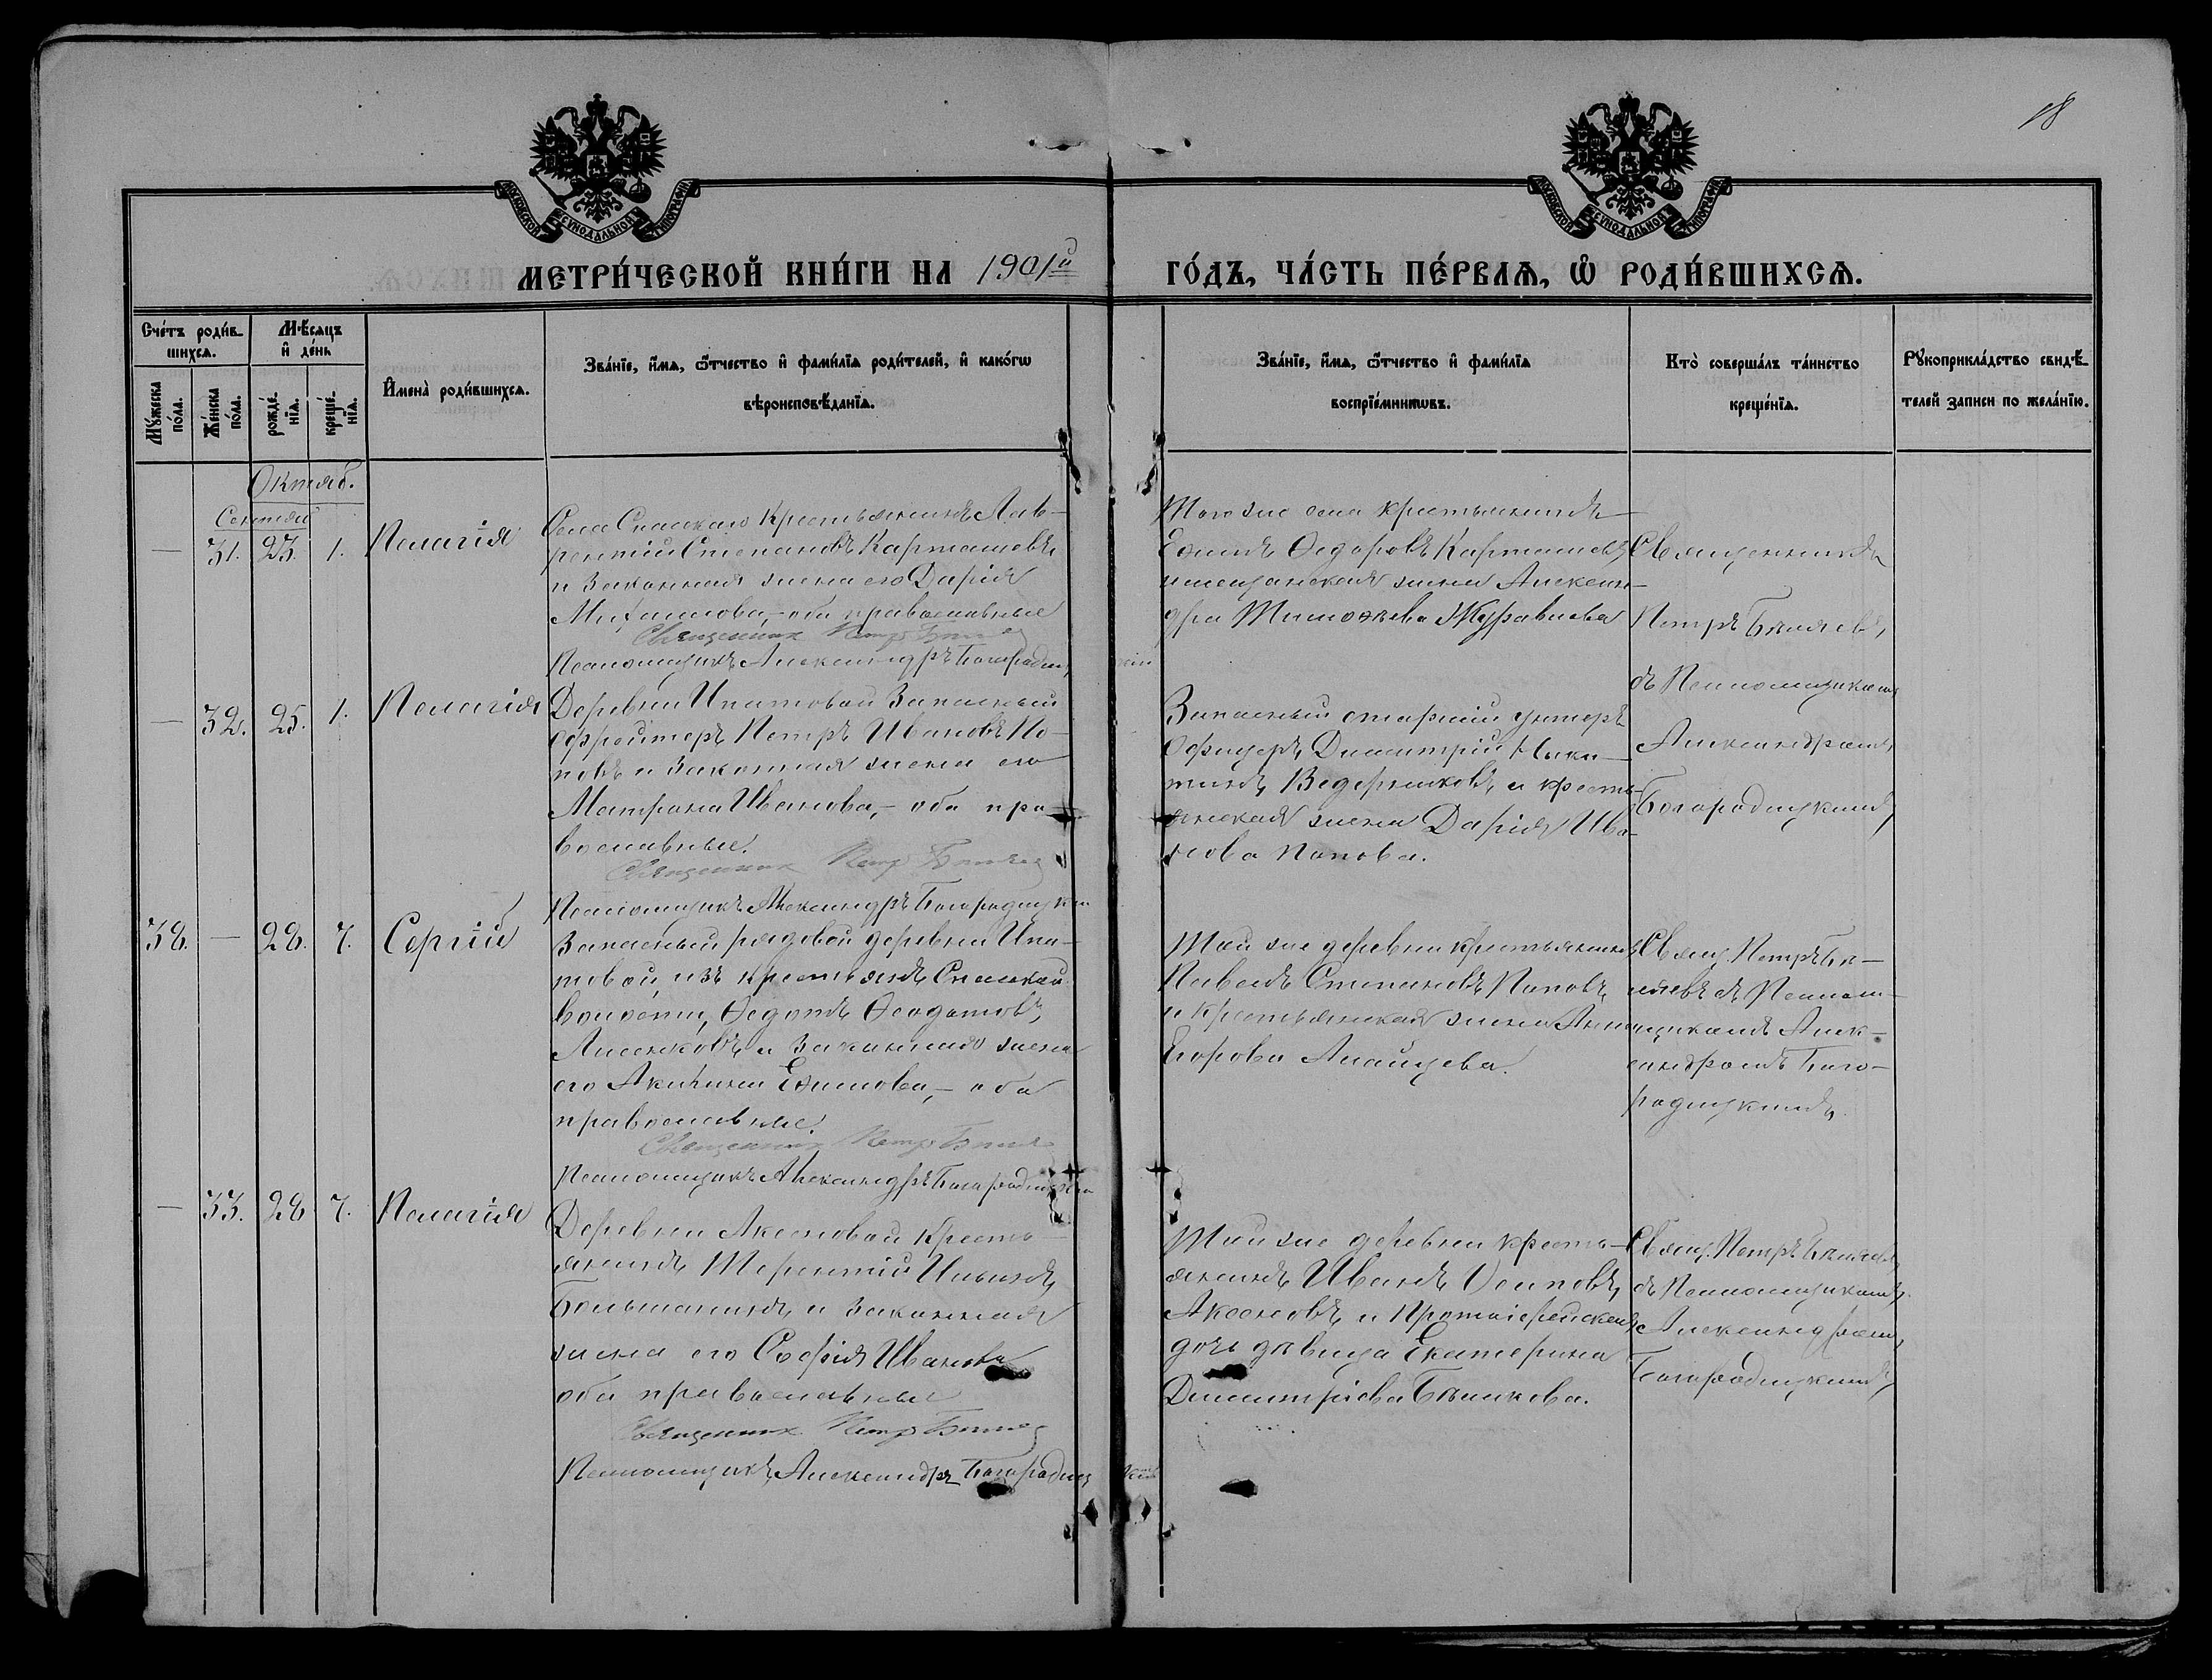 18
МОСКОВСКОЙ СѴНОДАЛЬНОЙ ТИПОГРАФІИ
МОСКОВСКОЙ СѴНОДАЛЬНОЙ ТИПОГРАФІИ
МЕТРИ́ЧЕСКОЙ КНИ́ГИ НА 1901й ГО́ДЪ, ЧА́СТЬ ПЕ́РВАѦ, Ѡ РОДИ́ВШИХСѦ.
Сче́тъ роди́в-
шихсѧ.
Мꙋ́жеска по́ла.
Же́нска по́ла.
Мѣ́сѧцъ
и҆ де́нь
рожде́нїѧ.
креще́нїѧ.
И҆мена̀ роди́вшихсѧ.
Зва́нїе, и҆́мѧ, ѻ҆́тчество и҆ фами́лїѧ роди́телей, и҆ како́гѡ
вѣроисповѣ́данїѧ.
Зва́нїе, и҆́мѧ, ѻ҆́тчество и҆ фами́лїѧ
воспрїе́мникѡвъ.
Кто̀ соверша́лъ та́инство
креще́нїѧ.
Рꙋкоприкла́дство свидѣ́-
телей записи по жела́нїю.
Октяб.
Сентяб
— 31. 23. 1. Пелагія
Села Спаскаго Крестьянинъ Лав-
рентій Степановъ Карташевъ
и законная жена его Дарія
Михаилова,- оба православные
Священник Петр Беляев
Псаломщикъ Александръ Богородицкій
Того же села крестьянинъ
Ефимъ Ѳедоровъ Карташевъ
и мещанская жена Алексан-
дра Тимоѳеева Журавлева
Священникъ
Петръ Бѣляевъ,
съ Псаломщикомъ
Александромъ
Богородицкимъ
— 32. 25. 1. Пелагія
Деревни Ипатовой Запасный
Ефрейторъ Петръ Ивановъ По-
повъ и законная жена его
Матрона Иванова,- оба пра-
вославные.
Священник Петр Беляев
Псаломщикъ Александръ Богородицкій
Запасный старшій унтеръ
Офицеръ Димитрій Ники-
тинъ Ведерниковъ, и кресть-
янская жена Дарія Ива-
нова Попова.
38. — 28. 7. Сергій
Запасный рядовой деревни Ипа-
товой, изъ крестьянъ Спаской
волости, Ѳедотъ Ѳеодотовъ
и законная жена
его Акилина Ефимова,- оба
православные.
Священник Петр Беляев
Псаломщикъ Александръ Богородицкій
Той же деревни крестьянинъ
Павелъ Степановъ Поповъ,
и крестьянская жена Анна
Егорова
Свящ. Петръ Бѣ-
ляевъ съ Псалом-
щикомъ Алек-
сандромъ Бого-
родицкимъ.
— 33. 28 7. Пелагія
Деревни Аксеновой Кресть-
янинъ Терентій Ильинъ
и законная
жена его Софія Иванова
оба православные
Священник Петр Беляев
Псаломщикъ Александръ Богородицкій
Той же деревни кресть-
янинъ Иванъ Осиповъ
Аксеновъ и Протоіерейская
дочь дѣвица Екатерина
Димитріева
Свящ. Петръ Бѣляевъ
съ Псаломщикомъ
Александромъ
Богородицкимъ